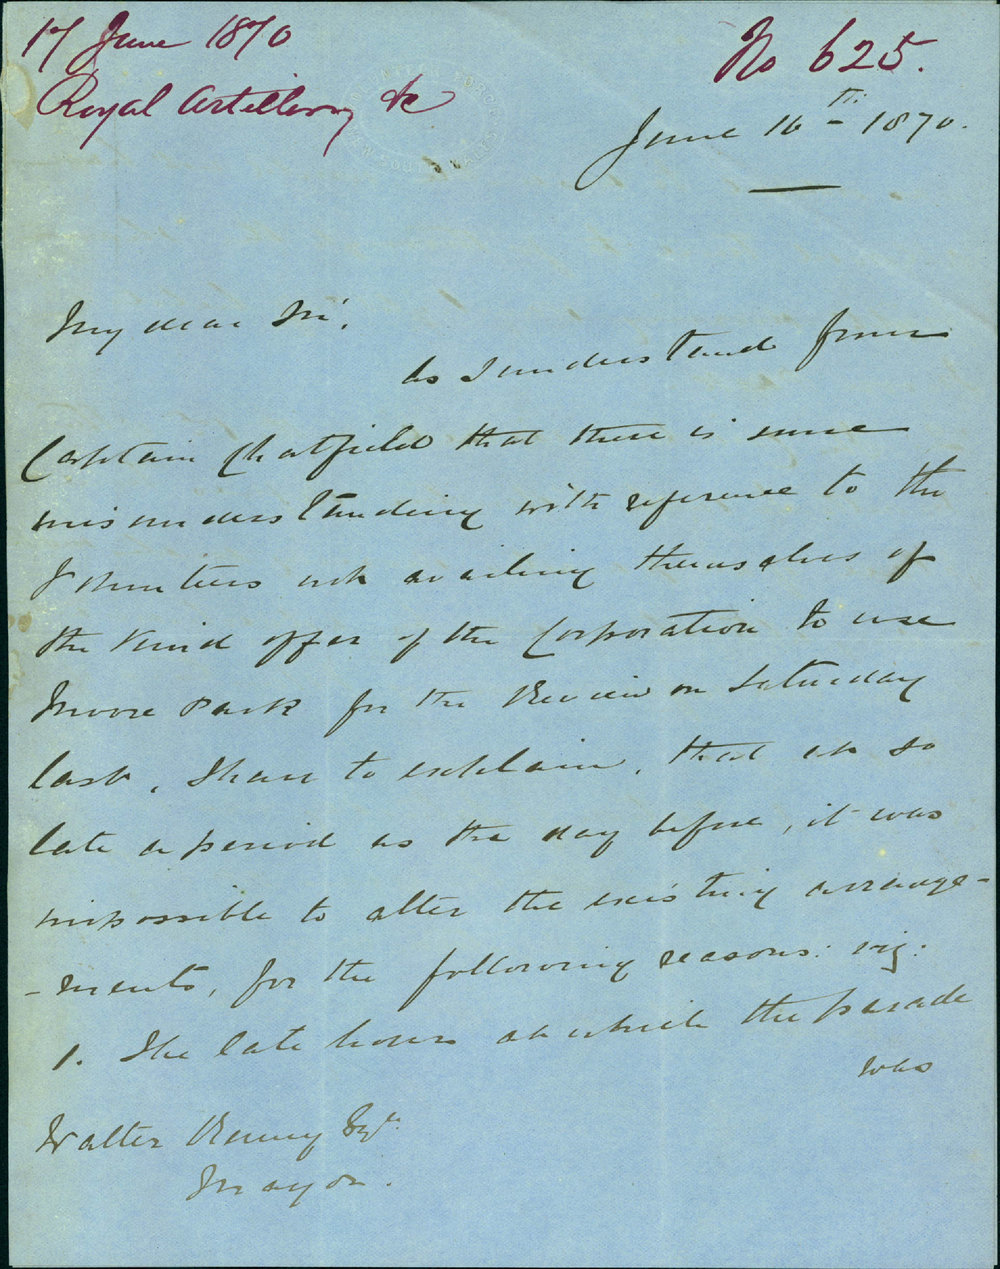 17 June 1870
Royal Artillery &c
No 625.
June 16th 1870.
My dear Sir,
As I understand from
Captain Chatfield that there is some
misunderstanding with reference to the
Volunteers not availing themselves of
the kind offer of the Corporation to use
Moore Park for the Review on Saturday
last, I have to explain, that at so
late a period as the day before, it was
impossible to alter the existing arrange-
-ments, for the following reasons: viz:
1. The late hour at which the parade
was
Walter Renny Esqr.
Mayor.